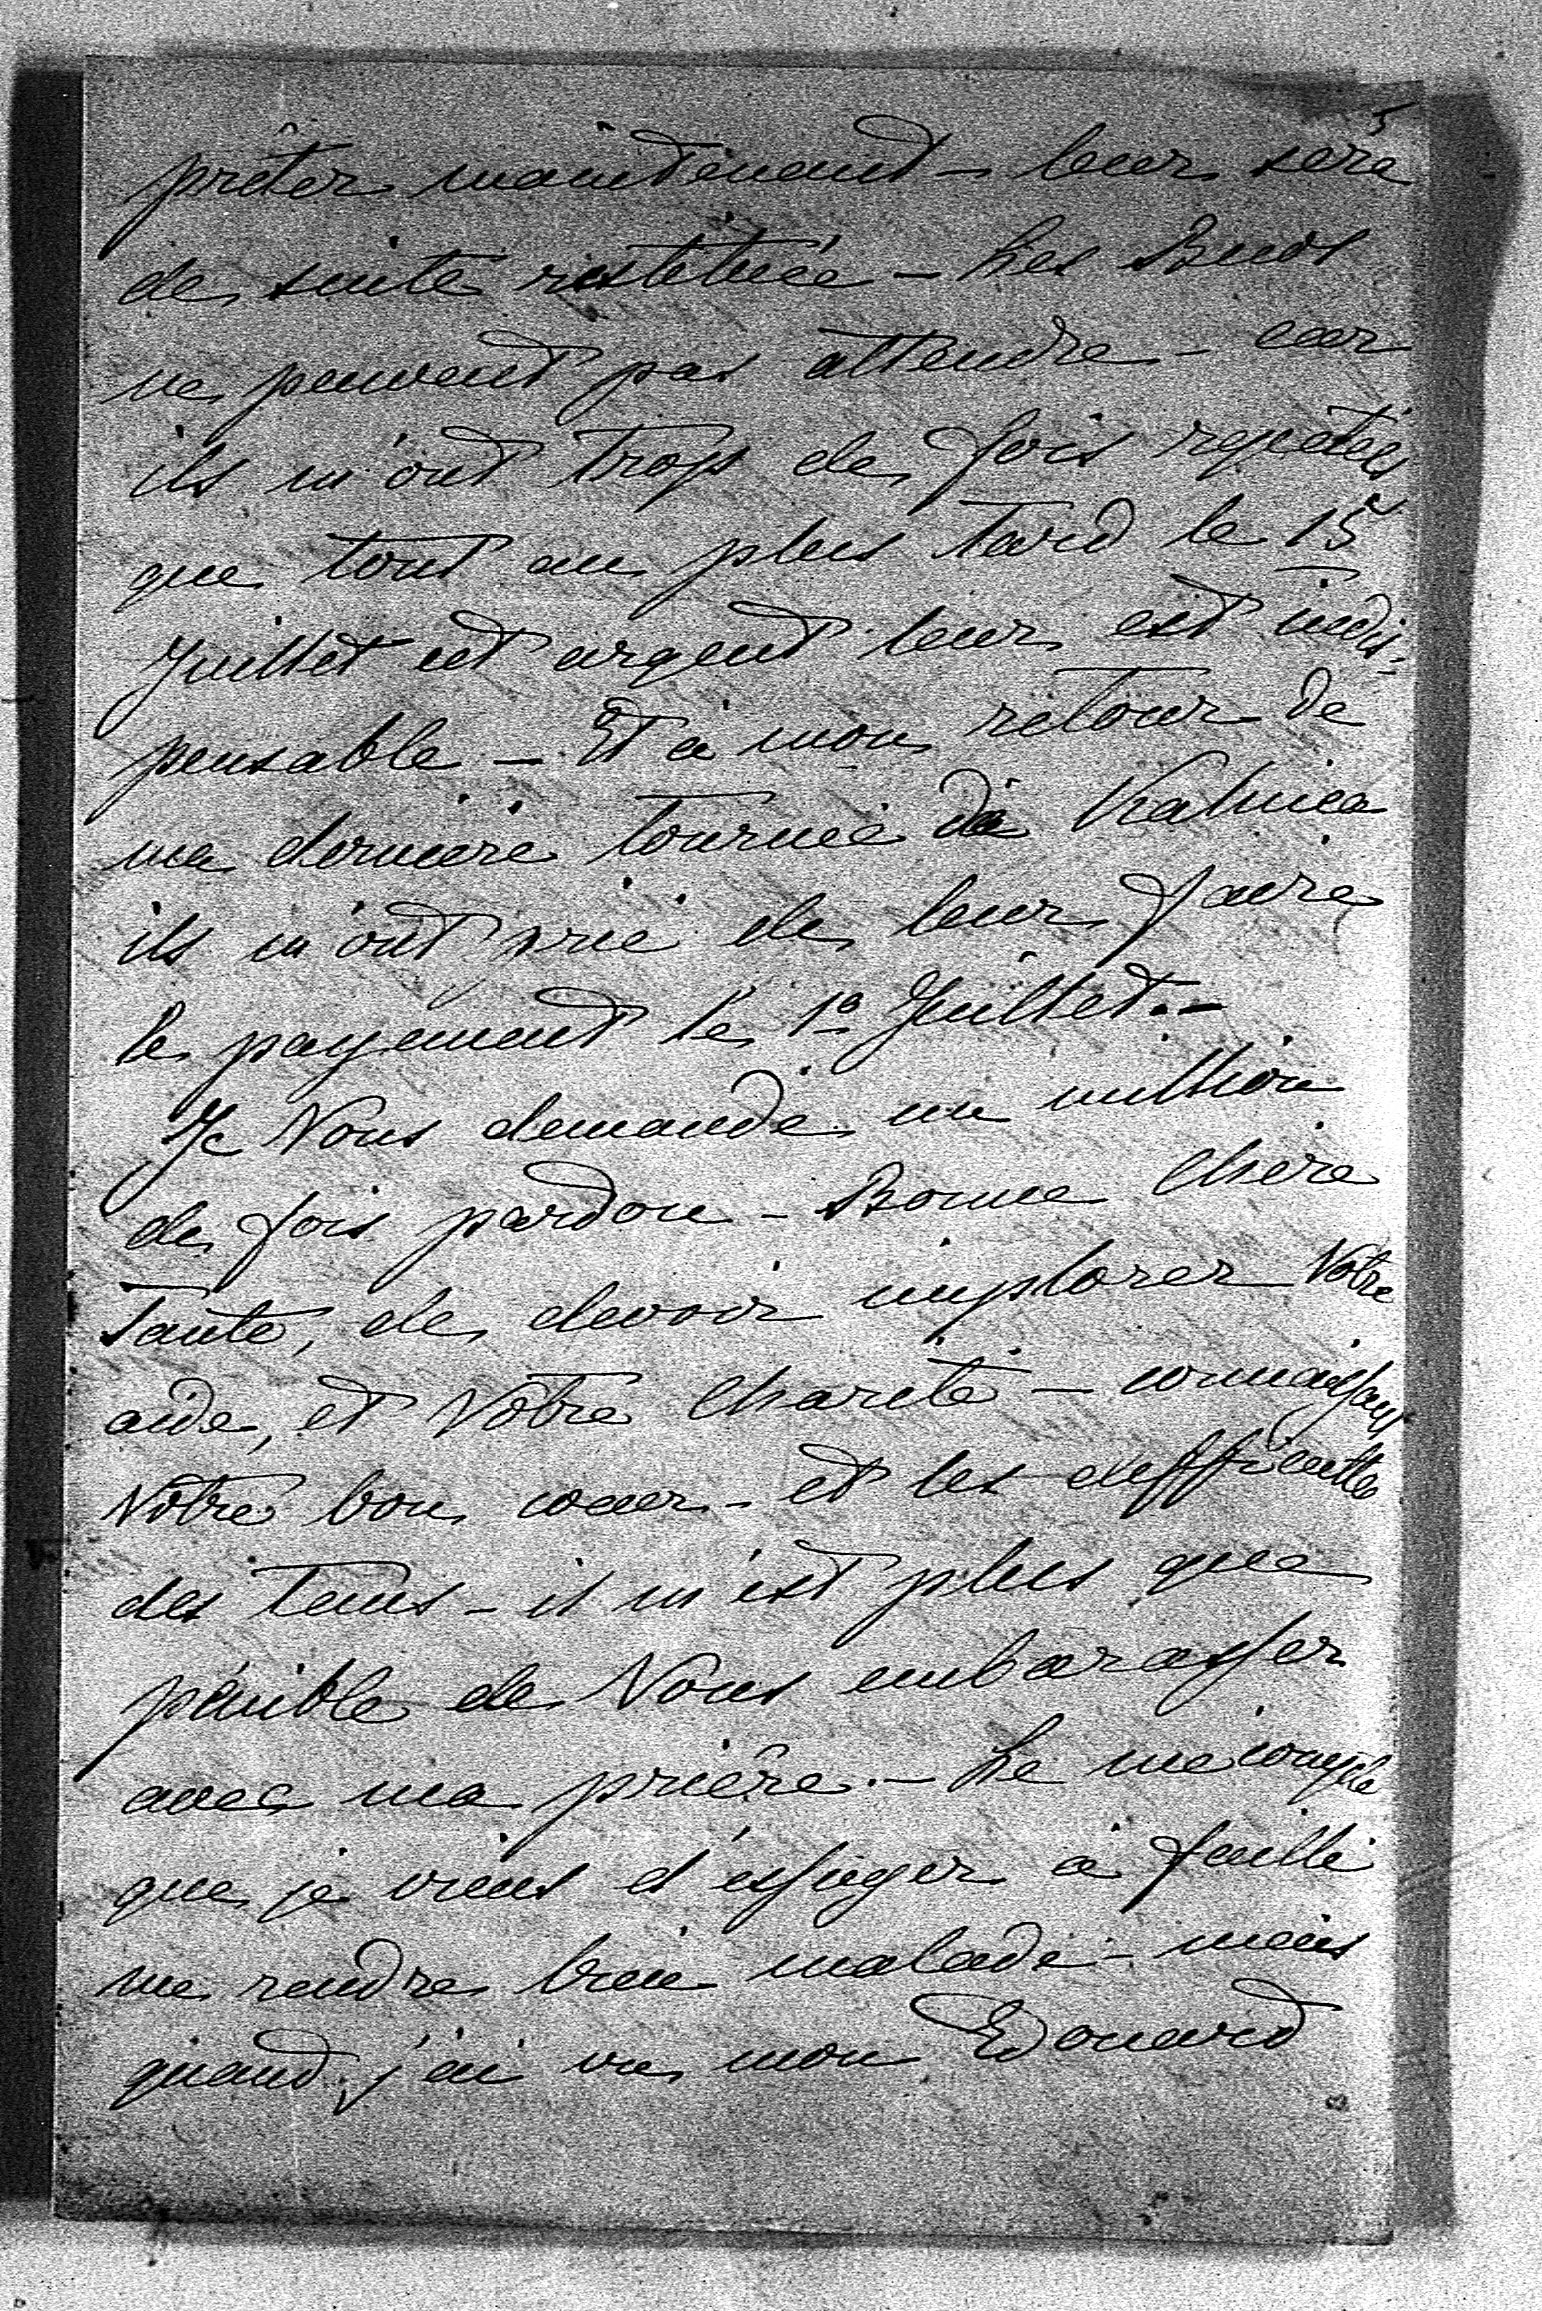 5
prêter maintenant – leur sera
de suite restituée – Les Buds
ne peuvent pas attendre – car
ils m'ont trop de fois repetés
que tout au plus tard le 15
Juillet cet argent leur est indis-
pensable – Et à mon retour de
ma dernière tournée de
ils m'ont prié de leur faire
le payement le 1º Juillet. –
Je Vous demande un million
de fois pardon – Bonne Chère
Tante, de devoir implorer Votre
aide, et Votre Charité – connaissant
Votre bon coeur – et les difficultés
des tems – il m'est plus que
pénible de Vous embarasser
avec ma prière. – Le mécompte
que je viens d'essuyer a failli
me rendre bien malade – mais
quand j'ai vu mon Edouard